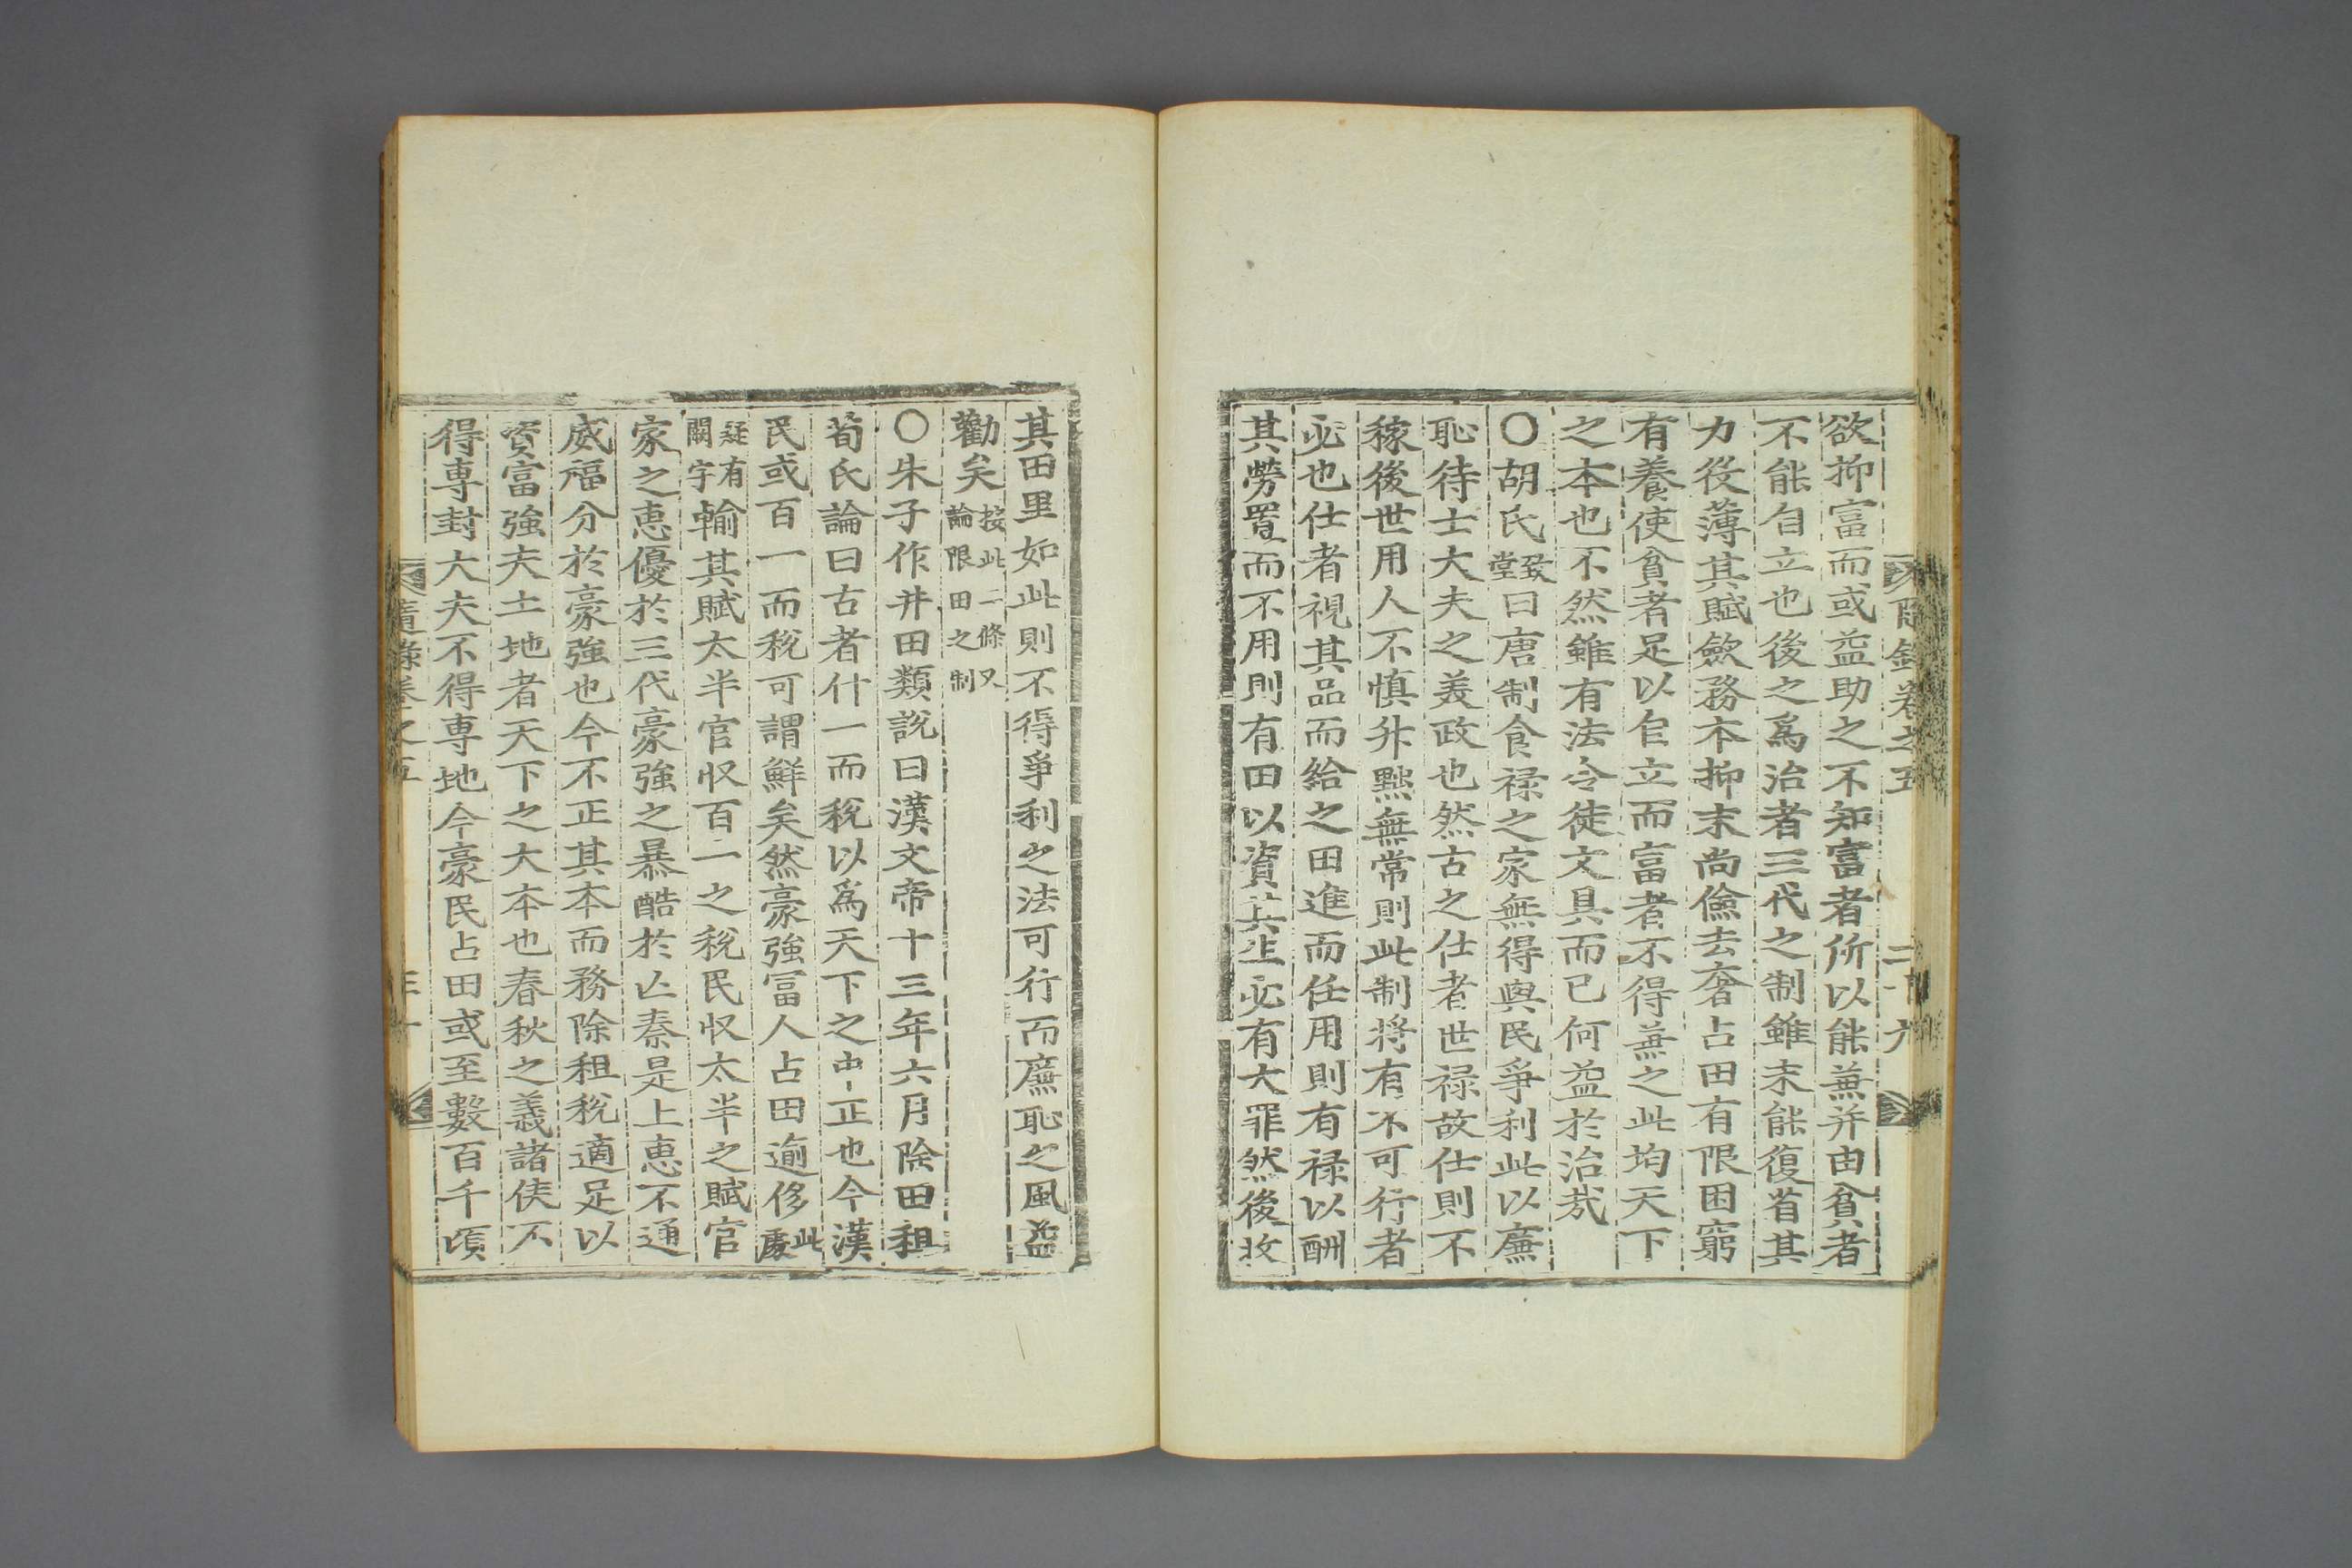 隨錄卷之五 二十六
欲抑富而或益助之不知富者所以能兼并由貧者
不能自立也後之爲治者三代之制雖未能復省其
力役薄其賦斂務本抑末尚儉去奢占田有限困窮
有養使貧者足以自立而富者不得兼之此均天下
之本也不然雖有法令徒文具而已何益於治㢤
〇胡氏致堂曰唐制食祿之家無得與民爭利此以廉
恥待士大夫之美政也然古之仕者世祿故仕則不
稼後世用人不愼升黜無常則此制將有不可行者
必也仕者視其品而給之田進而任用則有祿以酬
其勞置而不用則有田以資其生必有大罪然後收
其田里如此則不得爭利之法可行而廉恥之風益
勸矣按此二條又論限田之制
〇朱子作井田類說曰漢文帝十三年六月除田租
荀氏論曰古者什一而稅以爲天下之中正也今漢
民或百一而稅可謂鮮矣然豪強富人占田逾侈此處
疑有闕字輸其賦太半官収百一之稅民収太半之賦官
家之惠優於三代豪強之暴酷於亾秦是上惠不通
威福分於豪強也今不正其本而務除租稅適足以
資富強夫土地者天下之大本也春秋之義諸侯不
得專封大夫不得專地今豪民占田或至數百千頃
隨錄卷之五